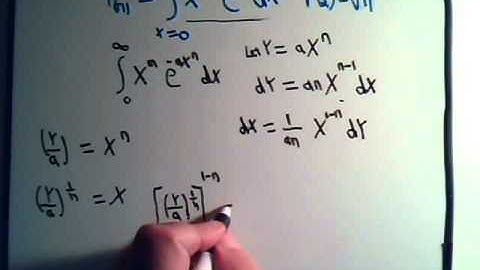 x=0
∫₀^∞ xⁿ e^(-axⁿ) dx
Let Y = axⁿ
dY = anx^(n-1) dx
dx = 1/an x^(1-n) dY
(Y/a) = xⁿ
(Y/a)^(1/n) = x [(Y/a)^(1/n)]^(1-n)